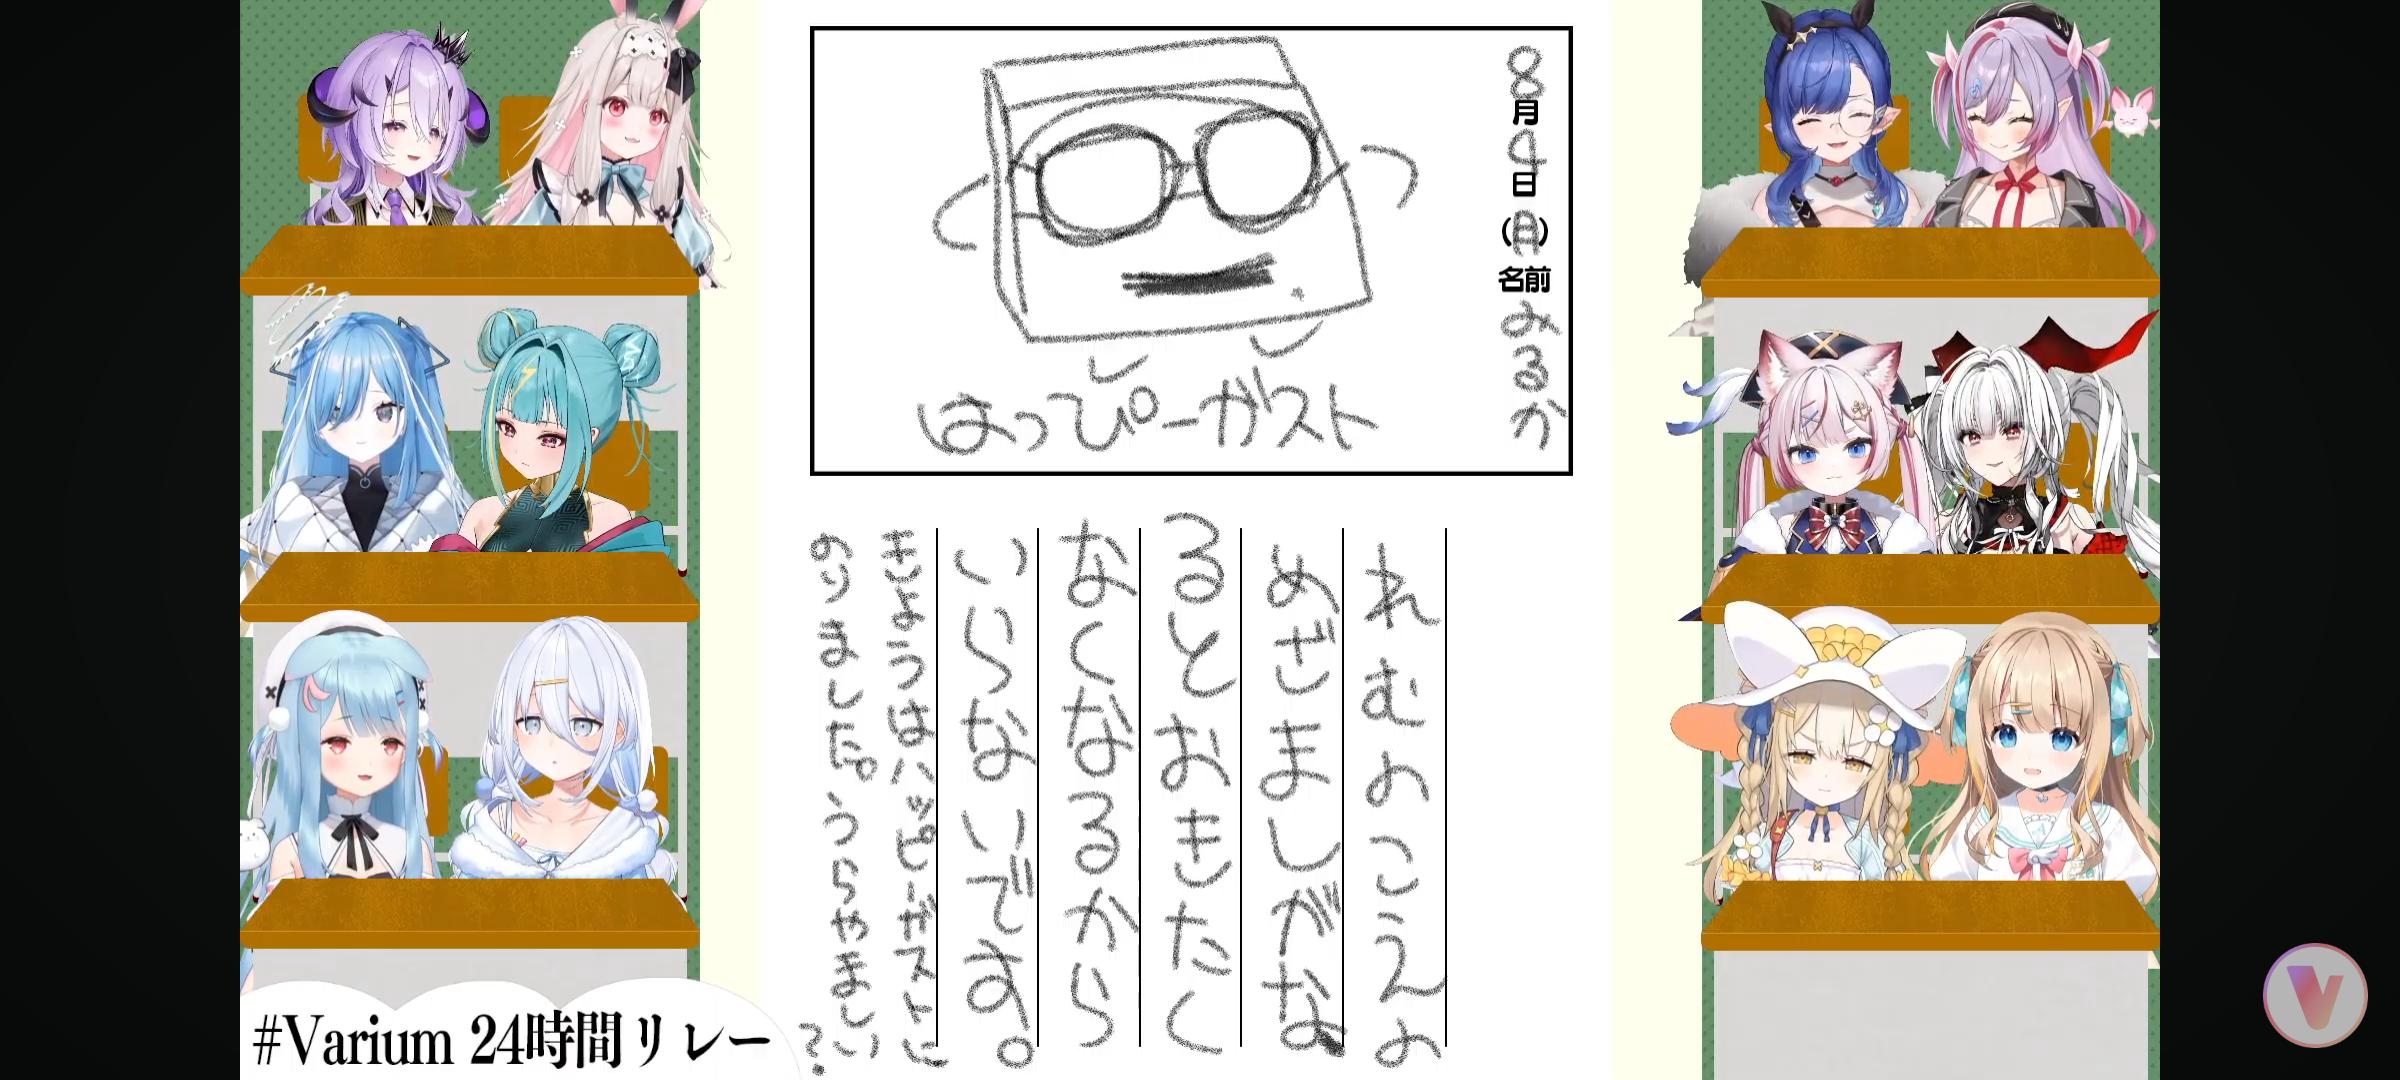 8月4日(月)名前 みるか
はっぴーガスト
れむのこえの
めざましがな
るとおきたく
なくなるから
いらないです。
きょうはハッピーガストに
のりました。うらやましい?
#Varium 24時間リレー
V